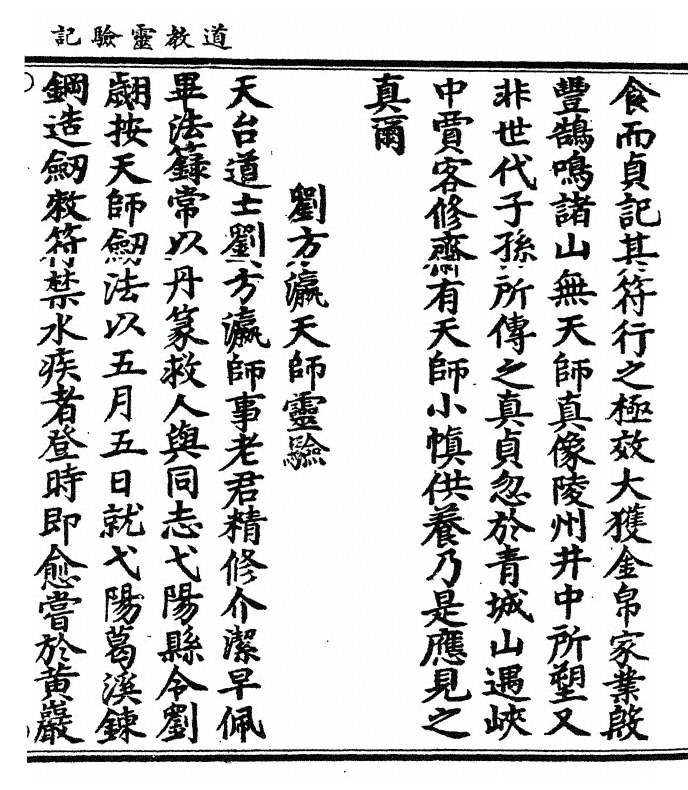 道教靈驗記
食而貞記其符行之極效大獲金帛家業殷
豐鵠鳴諸山無天師真像陵州井中所塑又
非世代子孫所傳之真貞忽於青城山遇峽
中賈客修齋有天師小幀供養乃是應見之
真爾
劉方瀛天師靈驗
天台道士劉方瀛師事老君精修介潔早佩
畢法籙常以丹篆救人與同志弋陽縣令劉
翽按天師劒法以五月五日就弋陽葛溪鍊
鋼造劒敕符禁水疾者登時即愈嘗於黃巖